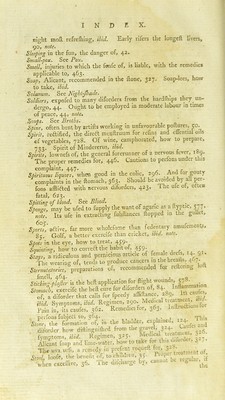 INDEX.
night most refreshing, ibid. Early risers the longest livers,
90, note.
Sleeping in the sun, the danger of, 42.
Small-pox. See Pox.
Smell, injuries to which the sense of, is liable, with the remedies
applicable to, 463.
Soap, Alicant, recommended in the stone, 327. Soap-lees, how
to take, ibid.
Solanum. See Nightshade.
Soldiers, exposed to many disorders from the hardships they un-
dergo, 44. Ought to be employed in moderate labour in times
of peace, 44, note.
Soups. See Broths.
Spine, often bent by artists working in unfavourable postures, 50.
Spirit, rectified, the direct menstruum for resins and essential oils
of vegetables, 728. Of wine, camphorated, how to prepare,
733. Spirit of Mindererus, ibid.
Spirits, lowness of, the general forerunner of a nervous fever, 189.
The proper remedies for, 446. Cautions to persons under this
complaint, 447.
Spirituous liquors, when good in the colic, 296. And for gouty
complaints in the stomach, 365. Should be avoided by all per-
sons afflicted with nervous disorders, 423. The use of, often
fatal, 623.
Spitting of blood. See Blood.
Sponge, may be used to supply the want of agaric as a styptic, 577,
note. Its use in extracting substances stopped in the gullet,
605.
Sports, active, far more wholesome than sedentary amusements,
85. Golf, a better exercise than cricket, ibid. note.
Spots in the eye, how to treat, 459.
Squinting, how to correct the habit of, 459.
Stays, a ridiculous and pernicious article of female dress, 14, 91.
The wearing of, tends to produce cancers in the breasts, 467.
Sternutatories, preparations of, recommended for restoring lost
smell, 464.
Sticking plaster is the best application for slight wounds, 578.
Stomach, exercise the best cure for disorders of, 84. Inflammation
of, a disorder that calls for speedy assistance, 289. Its causes,
ibid. Symptoms, ibid. Regimen, 290. Medical treatment, ibid.
Pain in, its causes, 362. Remedies for, 363. Instructions for
persons subject to, 364.
Stone, the formation of, in the bladder, explained, 124. This
disorder how distinguished from the gravel, 324. Causes and
Symptoms, ibid. Regimen, 325. Medical treatment, 326.
Alicant soap and lime-water, how to take for this disorder, 327.
The uva ursi, a remedy in present request for, 328.
Stool, loose, the benefit of, to children, 35. Proper treatment of,
when excessive, 36. The discharge by, cannot be regular, if
the